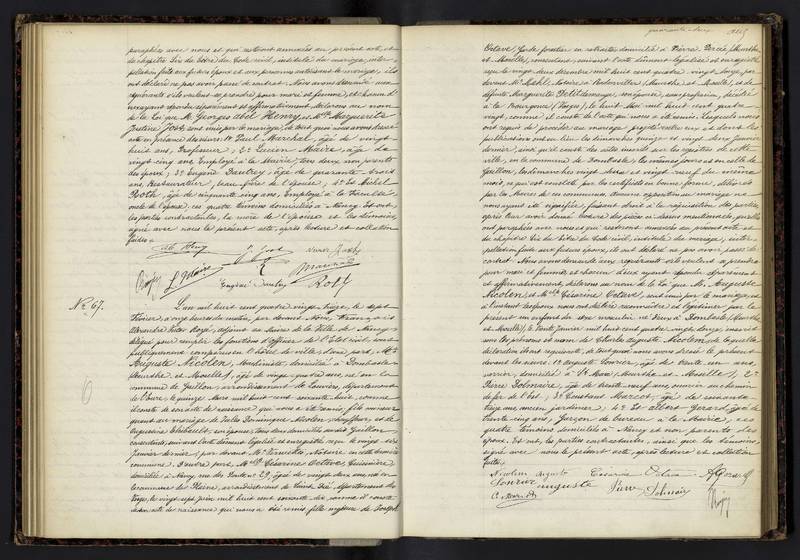 paraphées avec nous et qui resteront annexées au présent acte, et
du chapitre six du titre du Code civil, intitulé du mariage, inter-
pellation faite aux futurs époux et aux personnes autorisant le mariage, ils
ont déclaré ne pas avoir passé de contrat. Nous avons demandé aux
requérants s'ils veulent se prendre pour mari et femme, et chacun d'
eux ayant répondu séparément et affirmativement, déclarons au nom
de la loi que M. Georges Abel Henry, et Mlle Marguerite
Justine Jost sont unis par le mariage, de tout quoi nous avons dressé
acte en présence de Messieurs 1° Paul Marchal, âgé de vingt-
huit ans, Professeur, 2° Lucien Maire, âgé de
vingt-cinq ans, Employé à la Mairie, tous deux non parents
des époux, 3° Eugène Dautrey, âgé de quarante trois
ans, Restaurateur, beau-frère de l'épouse, 4° et Michel
Roth, âgé de cinquante cinq ans, Employé
oncle de l'époux, ces quatre témoins domiciliés à Nancy. Et ont,
les parties contractantes, la mère de l'épouse et les témoins,
signé avec nous le présent acte, après lecture et collation
faites.
L. Maire Eugène Dautrey Marchal Roth
N° 67.
L'an mil huit cent quatre vingt treize, le sept
Février, à onze heures du matin, par devant Nous, François
Alexandre Victor adjoint au Maire de la Ville de Nancy,
délégué pour remplir les fonctions d'officier de l'État civil, sont
publiquement comparus en l'hôtel de ville, d'une part, Mr
Auguste Nicolon, domicilié à Dombasle
(Meurthe et Moselle), âgé de vingt-quatre ans, né en la
commune de Gaillon, arrondissement de Louviers, département
de l'Eure, le quinze Mars mil huit cent soixante huit, comme
il conste de son acte de naissance qui nous a été remis, fils mineur
quant au mariage de Jules Dominique Nicolon, et de
Thibault, son épouse, tous deux domiciliés audit Gaillon
consentants, suivant l'acte dûment légalisé et enregistré, reçu le
janvier dernier, par devant Me Notaire en cette même
commune. D'autre part, Mlle Césarine Octave, Cuisinière,
domiciliée à Nancy, rue N° 29, âgée de vingt deux ans, née en
la commune de Plaine, arrondissement de Saint Dié, département des
Vosges, le vingt sept juin mil huit cent soixante dix, comme il conste
de son acte de naissance qui nous a été remis, fille majeure de Joseph
quarante-deux
Octave, Garde forestier en retraite, domicilié à Pierre Percée (Meurthe
et Moselle), consentant, suivant l'acte dûment légalisé et enregistré
reçu le vingt deux décembre mil huit cent quatre vingt douze, par
devant Me Notaire à Badonviller (Meurthe et Moselle), et de
défunte Marguerite Petitdemange, son épouse, sans profession, décédée
à la Bourgonce (Vosges), le huit Mai mil huit cent quatre
vingt, comme il conste de l'acte qui nous a été remis. Lesquels nous
ont requis de procéder au mariage projeté entre eux et dont les
publications ont eu lieu les dimanches quinze et vingt deux janvier
dernier, ainsi qu'il conste des actes inscrits sur les registres de cette
ville, en la commune de Dombasle, les mêmes jours et en celle de
Gaillon, les dimanches vingt deux et vingt neuf du même
mois, ce qui est constaté par les certificats en bonne forme, délivrés
par les Maires de ces communes. Aucune opposition au mariage ne
nous ayant été signifiée, faisant droit à la réquisition des parties,
après leur avoir donné lecture des pièces ci dessus mentionnées, qu'elles
ont paraphées avec nous et qui resteront annexées au présent acte et
du chapitre six du titre du Code civil, intitulé du mariage, inter-
pellation faite aux futurs époux, ils ont déclaré ne pas avoir passé de
contrat. Nous avons demandé aux requérants s'ils veulent se prendre
pour mari et femme et chacun d'eux ayant répondu séparément
et affirmativement, déclarons au nom de la loi que M. Auguste
Nicolon, et Mlle Césarine Octave, sont unis par le mariage, et
à l'instant les époux nous ont déclaré reconnaître et légitimer par le
présent un enfant du sexe masculin, né d'eux à Dombasle (Meurthe
et Moselle), le trente janvier mil huit cent quatre vingt douze, inscrit
sous les prénoms et nom de Charles Auguste Nicolon, de laquelle
déclaration étant requérants, de tout quoi nous avons dressé le présent
devant témoins 1° Auguste âgé de trente un ans,
domicilié à Ste Marie (Meurthe et Moselle), 2°
Pierre âgé de trente neuf ans, ouvrier au chemin
de fer de l'Est, 3° Constant Marcot, âgé de soixante
treize ans, ancien jardinier, 4° Et Albert Gérard, âgé de
trente cinq ans, Garçon de bureau à la Mairie, ces
quatre témoins domiciliés à Nancy et non parents des
époux. Et ont, les parties contractantes, ainsi que les témoins,
signé avec nous le présent acte, après lecture et collation
faites.
Nicolon Auguste Césarine Octave A Gérard
auguste Pierre
C. Marcot